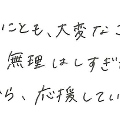 にとも、大変なこ
無理はしすぎ
ら、応援してい